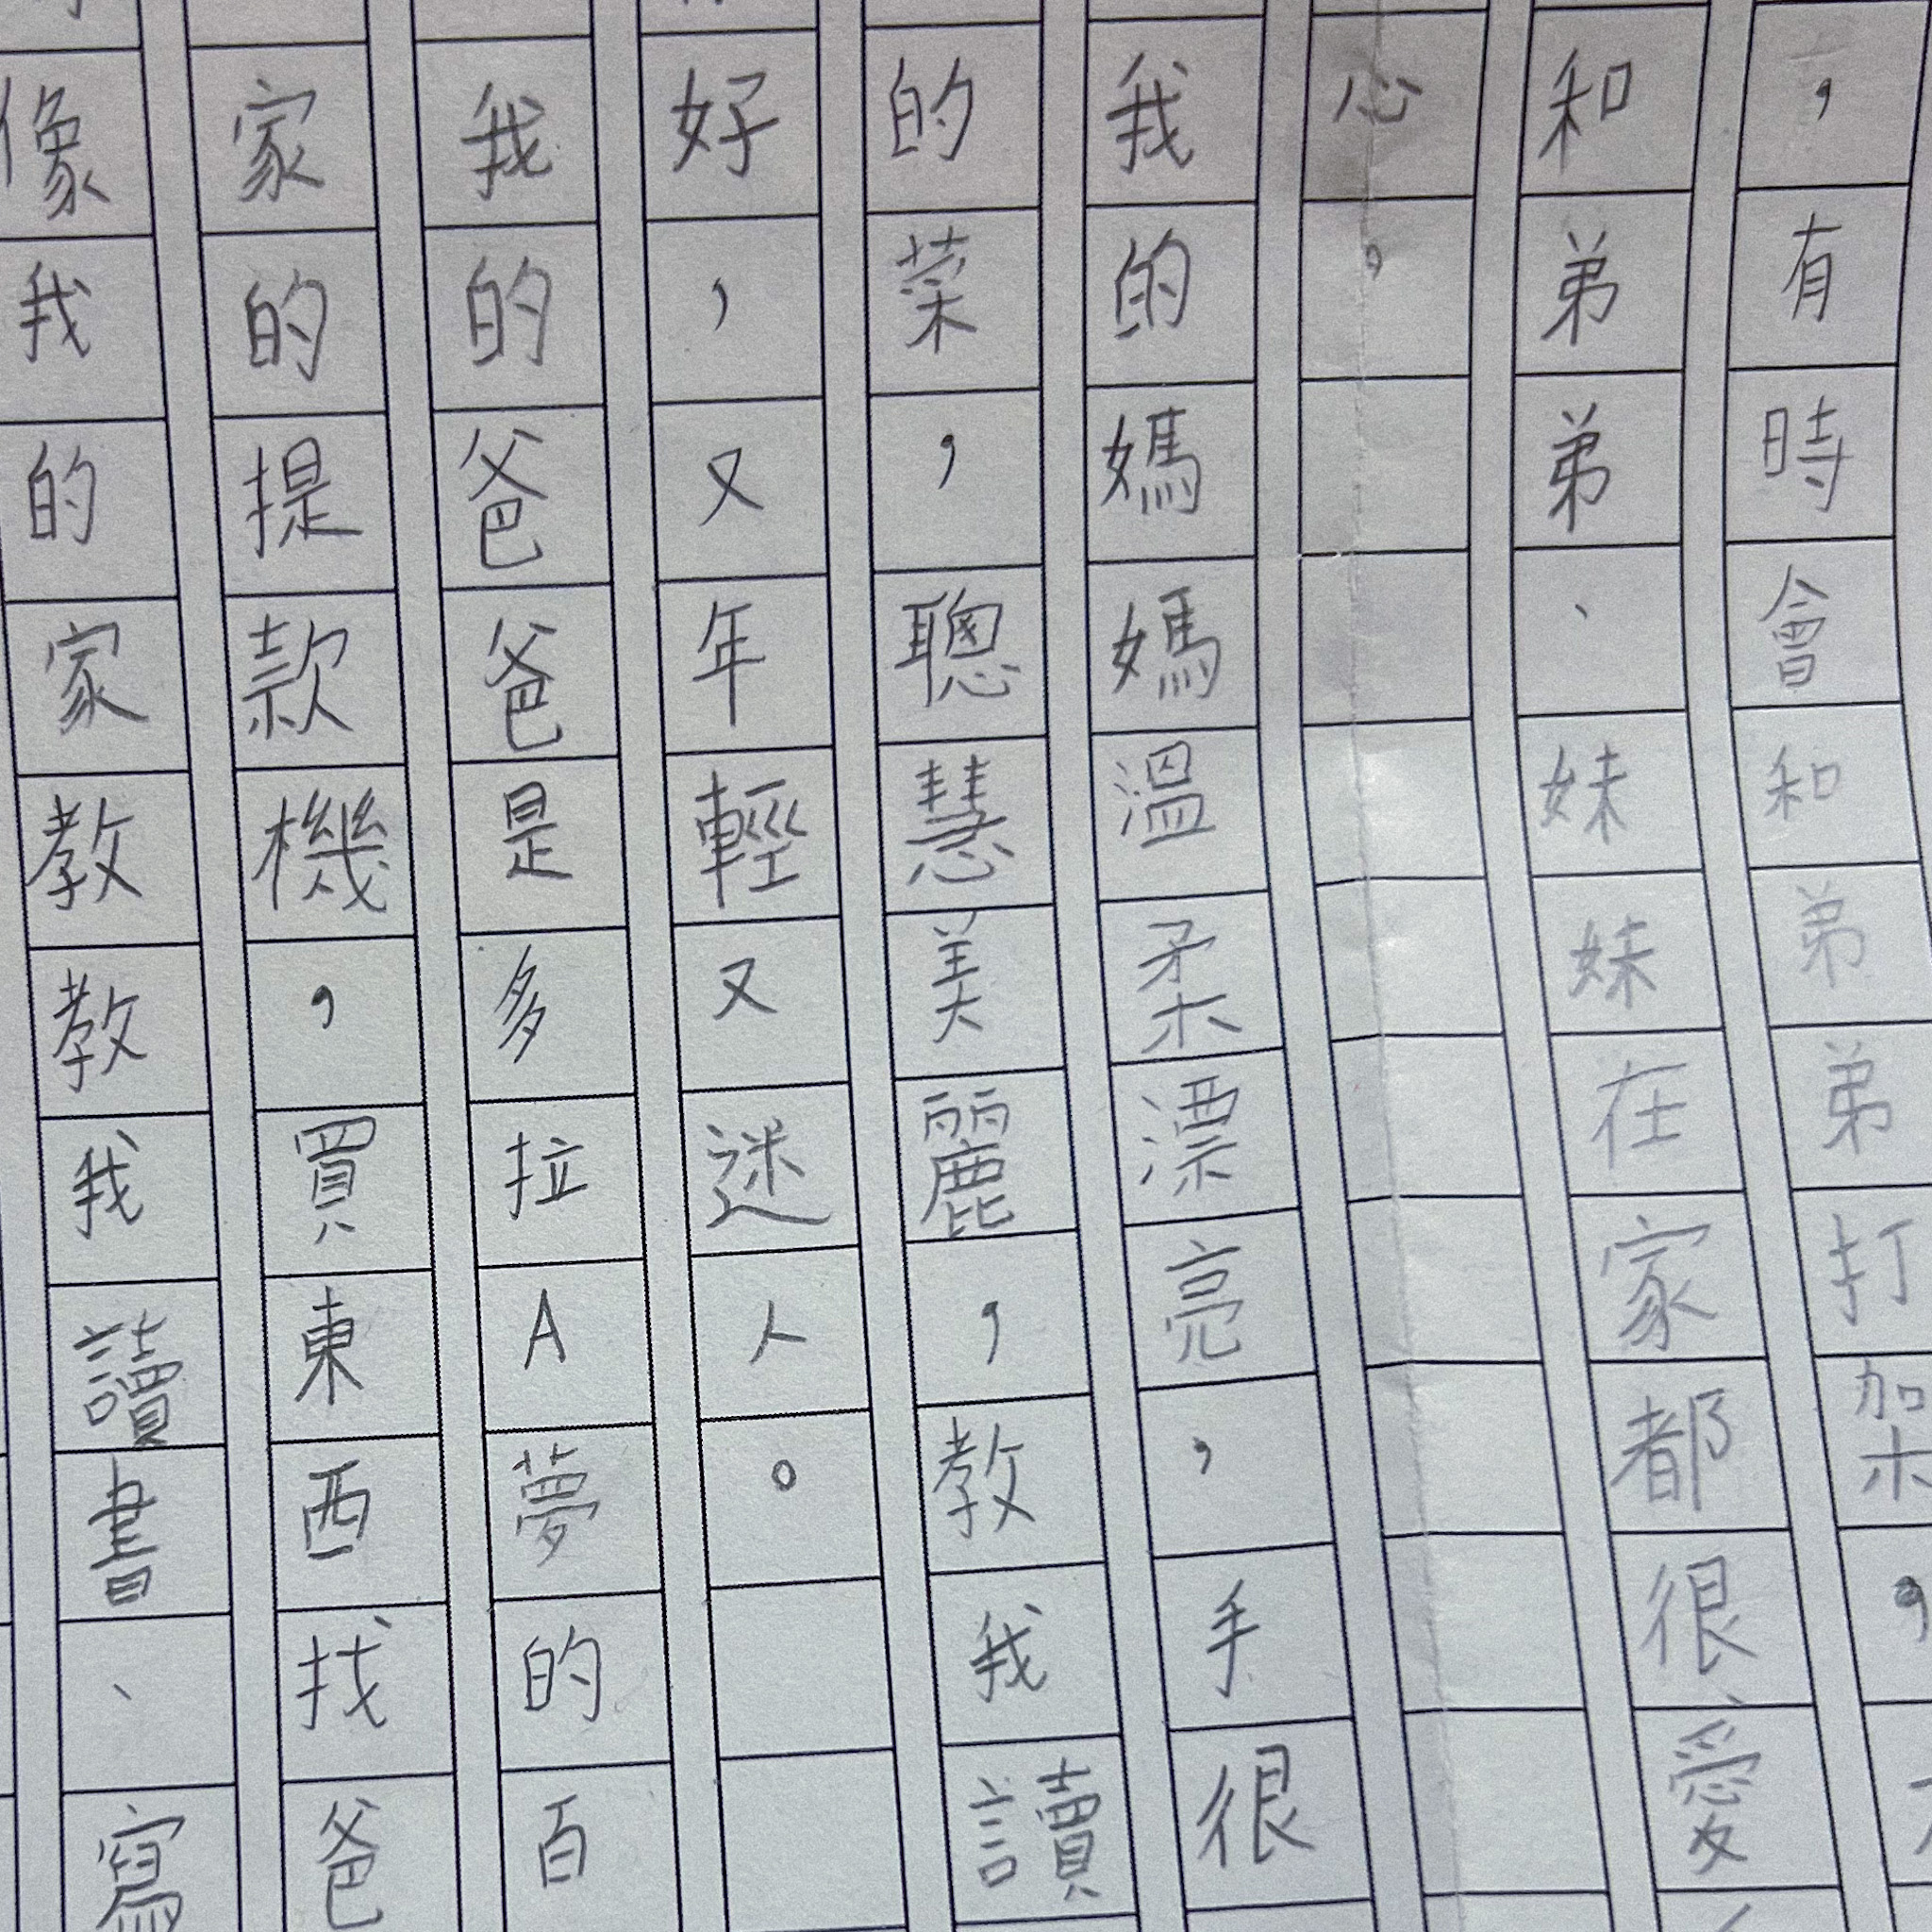 ，有時會和弟弟打架，
和弟弟、妹妹在家都很愛
心。
我的媽媽溫柔漂亮，手很
的菜，聰慧美麗，教我讀
好，又年輕又迷人。
我的爸爸是多拉A夢的百
家的提款機，買東西找爸
像我的家教教我讀書、寫